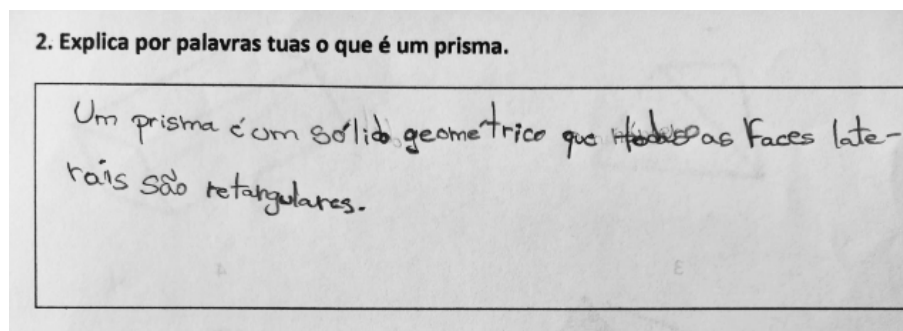 2. Explica por palavras tuas o que é um prisma.
Um prisma é um sólido geometrico que as faces late-
rais são retangulares.